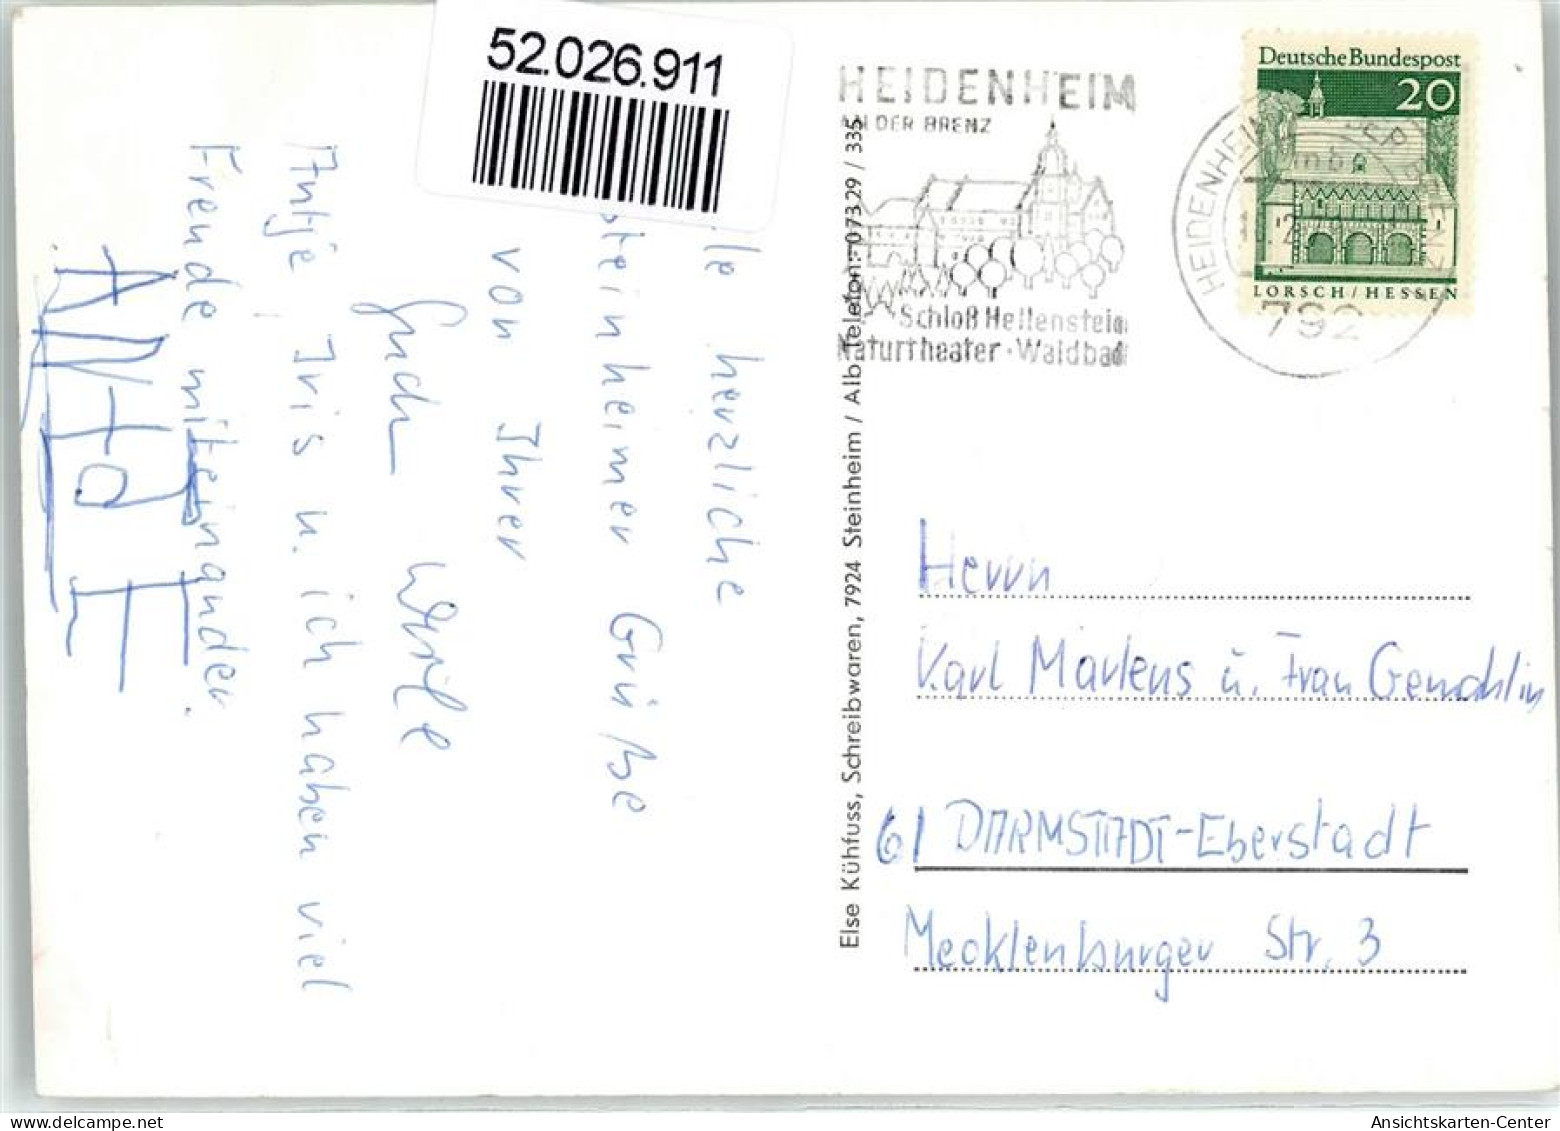 52.026.911
le herzliche
steinheimer Grüße
von Ihrer
Antje, Iris u. ich haben viel
Freude miteinander.
ANTJE
Else Kühfuss, Schreibwaren, 7924 Steinheim / Alb, Telefon: 07329 / 335
HEIDENHEIM
AN DER BRENZ
Schloß Hellenstein
Naturtheater · Waldbad
HEIDENHEIM
792
Deutsche Bundespost
20
LORSCH / HESSEN
Herrn
Karl Martens u. Frau Gemahlin
61 DARMSTADT-Eberstadt
Mecklenburger Str. 3
Ansichtskarten-Center